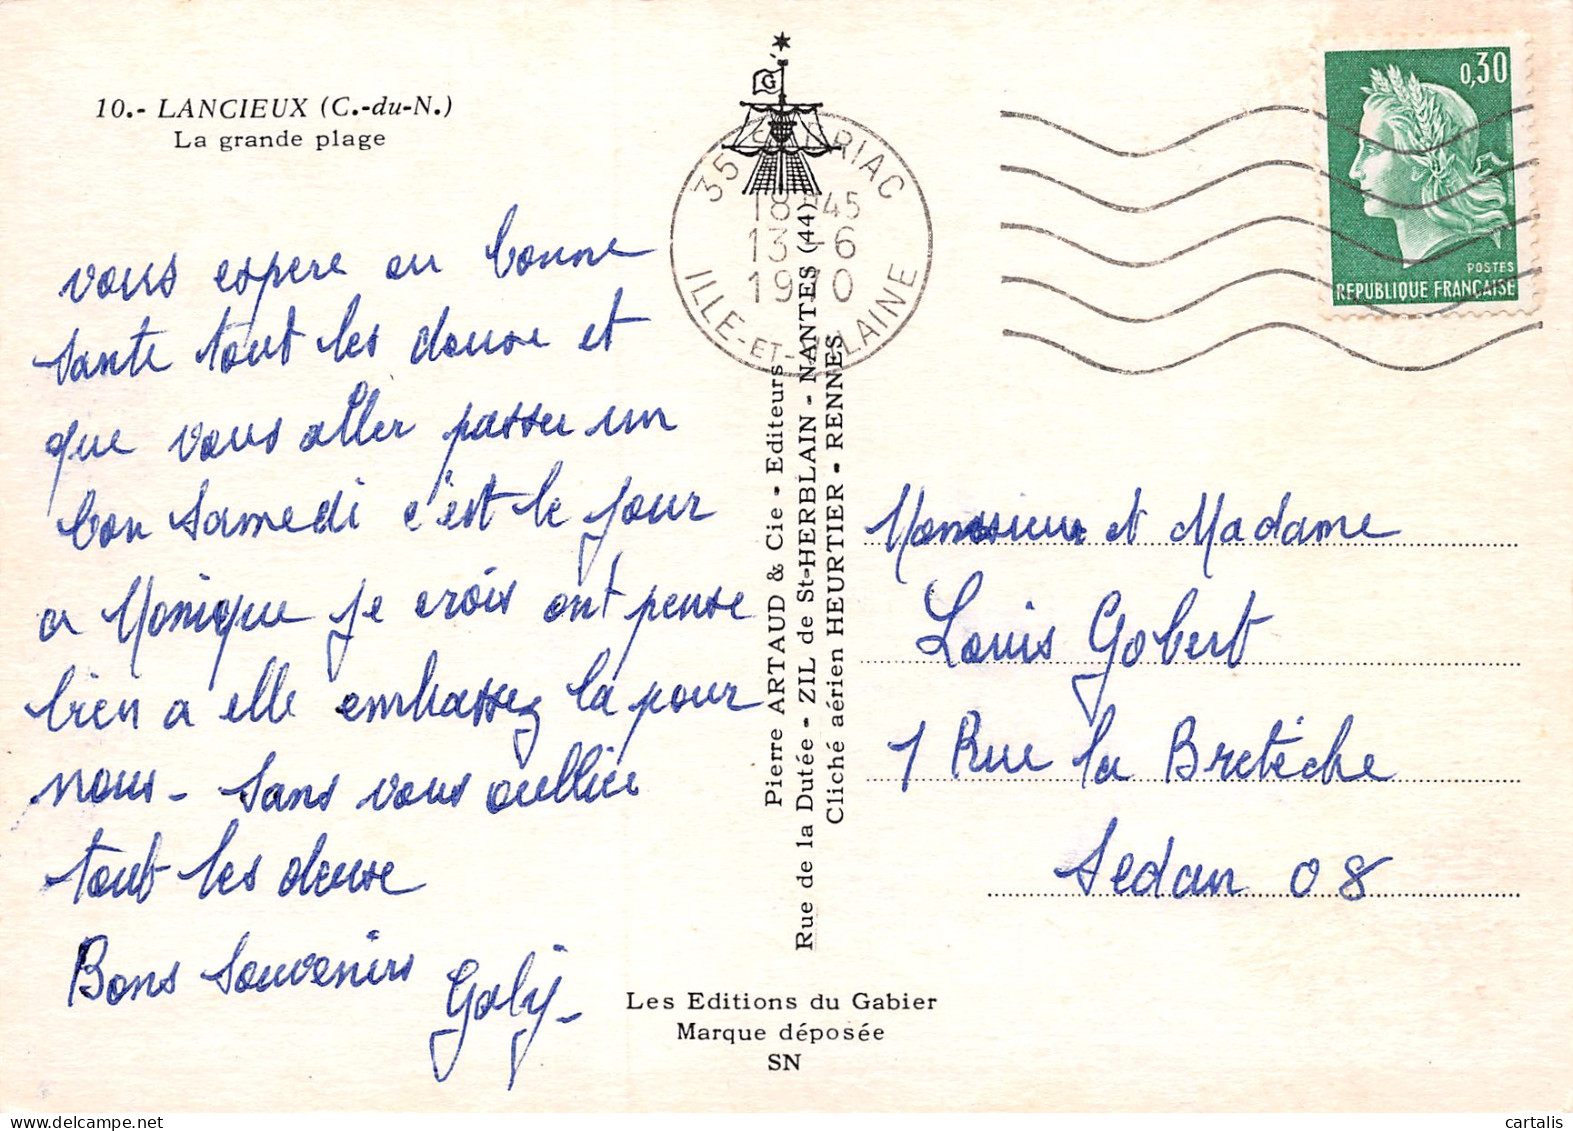 10.- LANCIEUX (C.-du-N.)
La grande plage
vous espere on bonne
sante tout les deuse et
que vous aller passer un
bon Samedi c'est le jour
a Monique je crois ont pense
bien a elle embassez la pour
nous - sans vous oullier
tout les deuse
Bons Souvenirs
Gaby -
G
35 RIAC
18 45
13 - 6
1970
ILLE-ET-VILAINE
Pierre ARTAUD & Cie - Editeurs
Rue de la Dutée - ZIL de St-HERBLAIN - NANTES (44)
Cliché aérien HEURTIER - RENNES
Les Editions du Gabier
Marque déposée
SN
0,30
POSTES
REPUBLIQUE FRANÇAISE
Monsieur et Madame
Louis Gobert
1 Rue la Bretèche
Sedan 08
cartalis